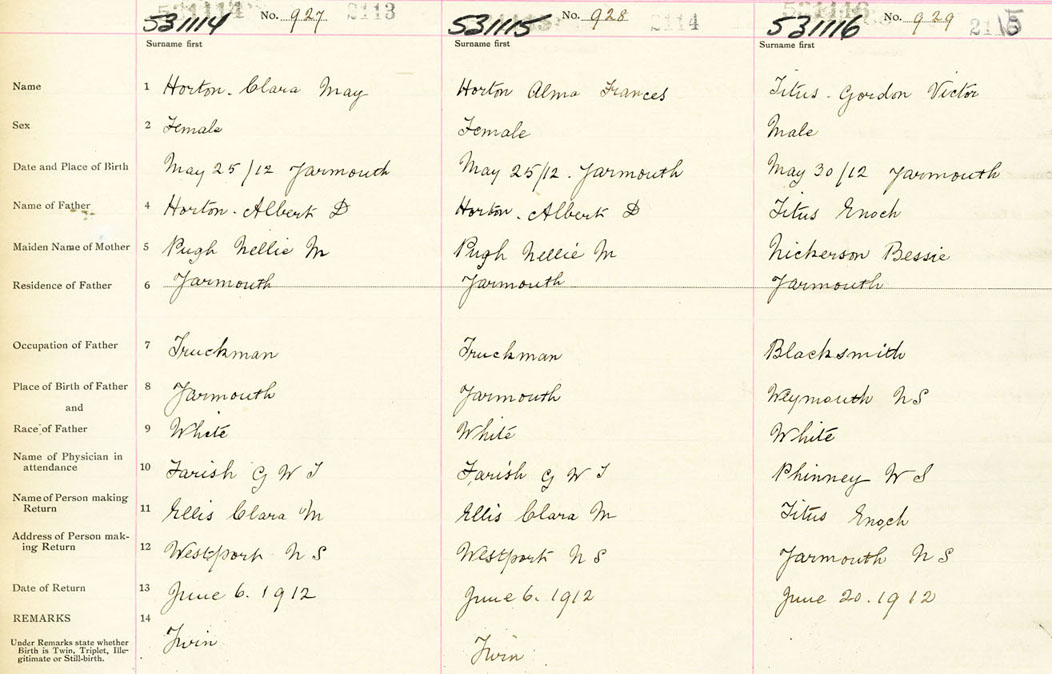 531114 No. 927 2113 531115 No. 928 2114 531116 No. 929 2115
Surname first Surname first Surname first
Name 1 Horton. Clara May Horton Alma Frances Titus. Gordon Victor
Sex 2 Female Female Male
Date and Place of Birth 3 May 25/12 Yarmouth May 25/12. Yarmouth May 30/12 Yarmouth
Name of Father 4 Horton. Albert D Horton. Albert D Titus Enoch
Maiden Name of Mother 5 Pugh Nellie M Pugh Nellie M Nickerson Bessie
Residence of Father 6 Yarmouth Yarmouth Yarmouth
Occupation of Father 7 Truckman Truckman Blacksmith
Place of Birth of Father 8 Yarmouth Yarmouth Weymouth NS
and
Race of Father 9 White White White
Name of Physician in
attendance 10 Farish G W T Farish G W T Phinney W S
Name of Person making
Return 11 Ellis Clara M Ellis Clara M Titus Enoch
Address of Person mak-
ing Return 12 Westport N S Westport N S Yarmouth N S
Date of Return 13 June 6. 1912 June 6. 1912 June 20. 1912
REMARKS 14
Under Remarks state whether
Birth is Twin, Triplet, Ille-
gitimate or Still-birth.
Twin Twin